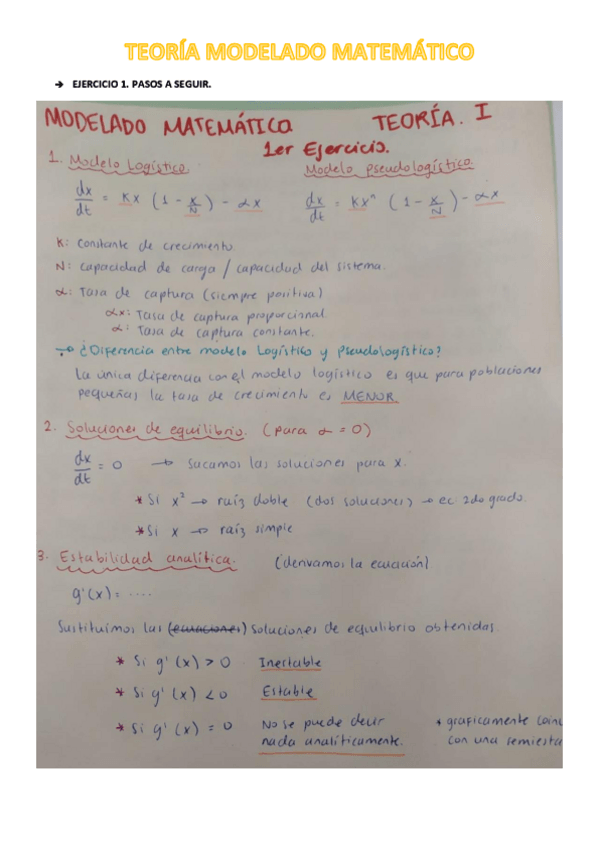 TEORÍA MODELADO MATEMÁTICO
➔ EJERCICIO 1. PASOS A SEGUIR.
MODELADO MATEMÁTICO TEORÍA. I
1er Ejercicio.
1. Modelo Logístico. Modelo pseudologístico.
dx/dt = Kx (1 - x/N) - αx dx/dt = Kxⁿ (1 - x/N) - αx
K: Constante de crecimiento
N: Capacidad de carga / capacidad del sistema.
α: Tasa de captura (siempre positiva)
αx: Tasa de captura proporcional
α: Tasa de captura constante.
¿Diferencia entre modelo Logístico y Pseudologístico?
La única diferencia con el modelo logístico es que para poblaciones
pequeñas la tasa de crecimiento es MENOR.
2. Soluciones de equilibrio. (para α = 0)
dx/dt = 0 → Sacamos las soluciones para x.
* Si x² → raíz doble (dos soluciones) → ec. 2do grado.
* Si x → raíz simple
3. Estabilidad analítica. (derivamos la ecuación)
g'(x) = ....
Sustituimos las (ecuaciones) soluciones de equilibrio obtenidas.
* Si g'(x) > 0 Inestable
* Si g'(x) < 0 Estable
* Si g'(x) = 0 No se puede decir * graficamente coin
nada analíticamente. con una semiesta